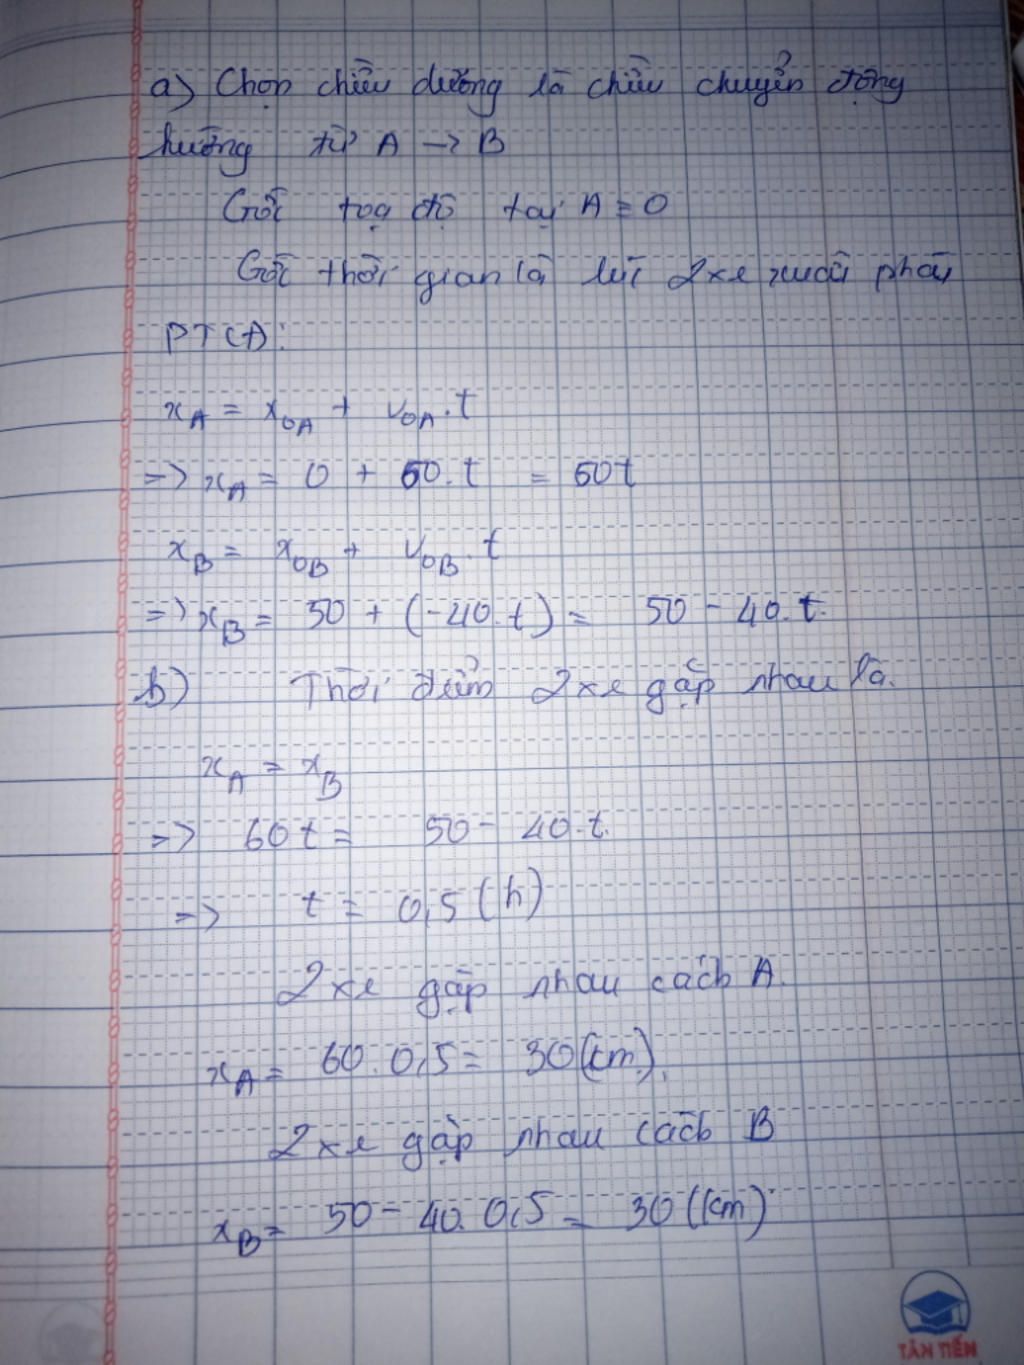 a) Chọn chiều dương là chiều chuyển động
hướng từ A -> B
Gốc toạ độ tại A ≡ 0
Gốc thời gian là lúc 2 xe xuất phát
PT(t):
x_A = x_0A + v_0A . t
=> x_A = 0 + 60.t = 60t
x_B = x_0B + v_0B . t
=> x_B = 50 + (-40.t) = 50 - 40.t
b) Thời điểm 2 xe gặp nhau là.
x_A = x_B
=> 60t = 50 - 40.t
=> t = 0,5 (h)
2 xe gặp nhau cách A.
x_A = 60.0,5 = 30 (km).
2 xe gặp nhau cách B
x_B = 50 - 40.0,5 = 30 (km)
TÂN TIẾN